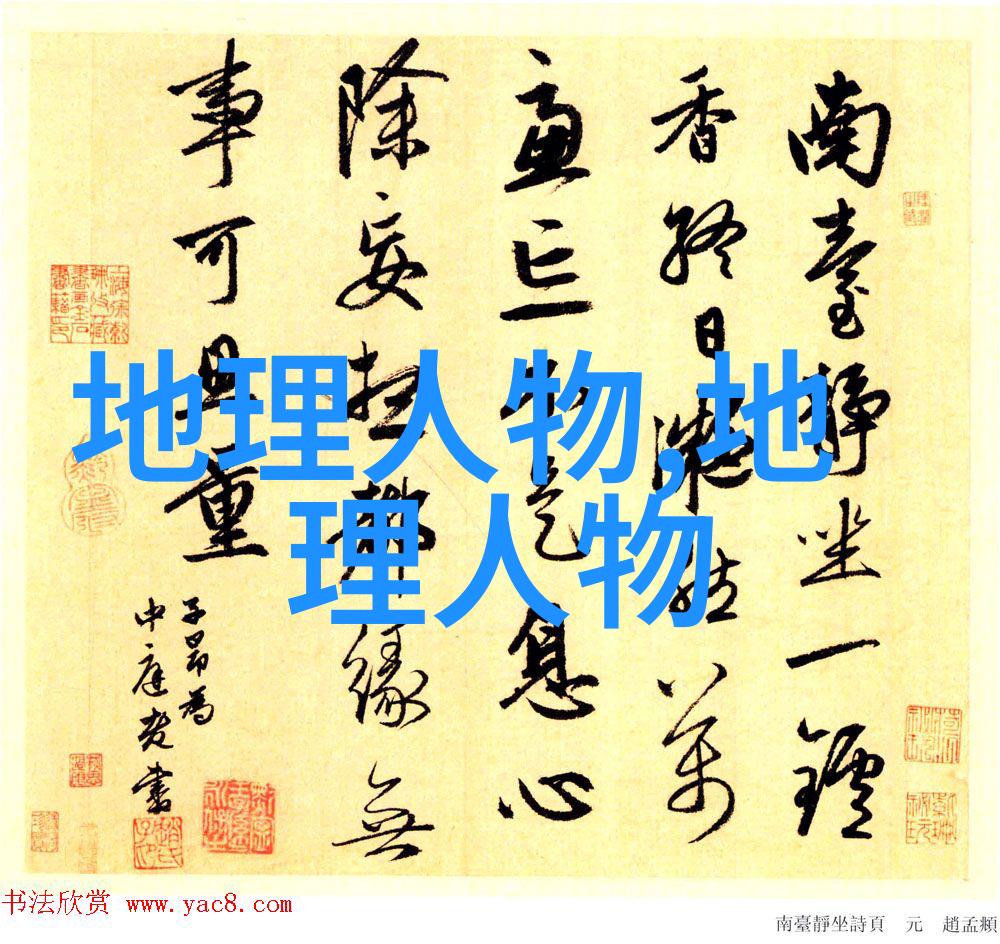 南臺静坐一鑪
香終日凝然萬
慮亡不是息心
除妄想都緣無
事可思量
子昂為
中庭老書
地理人物,地
理人物
书法欣赏 www.yac8.com
南臺靜坐詩頁 元 趙孟頫